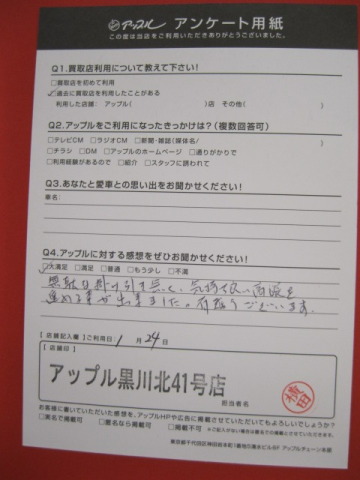 アップル アンケート用紙
この度は当店をご利用いただきありがとうございました。
Q1.買取店利用について教えて下さい!
□買取店を初めて利用
☑過去に買取店を利用したことがある
利用した店舗: アップル( )店 その他( )
Q2.アップルをご利用になったきっかけは?(複数回答可)
□テレビCM □ラジオCM □新聞・雑誌(媒体名/ )
□チラシ □DM □アップルのホームページ □通りがかりで
□利用経験があるので □紹介 □スタッフに誘われて
Q3.あなたと愛車との思い出をお聞かせください!
車名:
Q4.アップルに対する感想をぜひお聞かせください!
☑大満足 □満足 □普通 □もう少し □不満
無駄な掛け引き無く、気持ち良い商談を
進める事が出来ました。有難うございます。
【店舗記入欄】ご利用日 1 月 24 日
【店舗印】
アップル黒川北41号店
担当者名
お客様に書いていただいた感想を、アップルHPや広告に掲載させていただいてもよろしいでしょうか?
□実名で掲載可 □匿名なら掲載可 □掲載不可
アップルチェーン本部